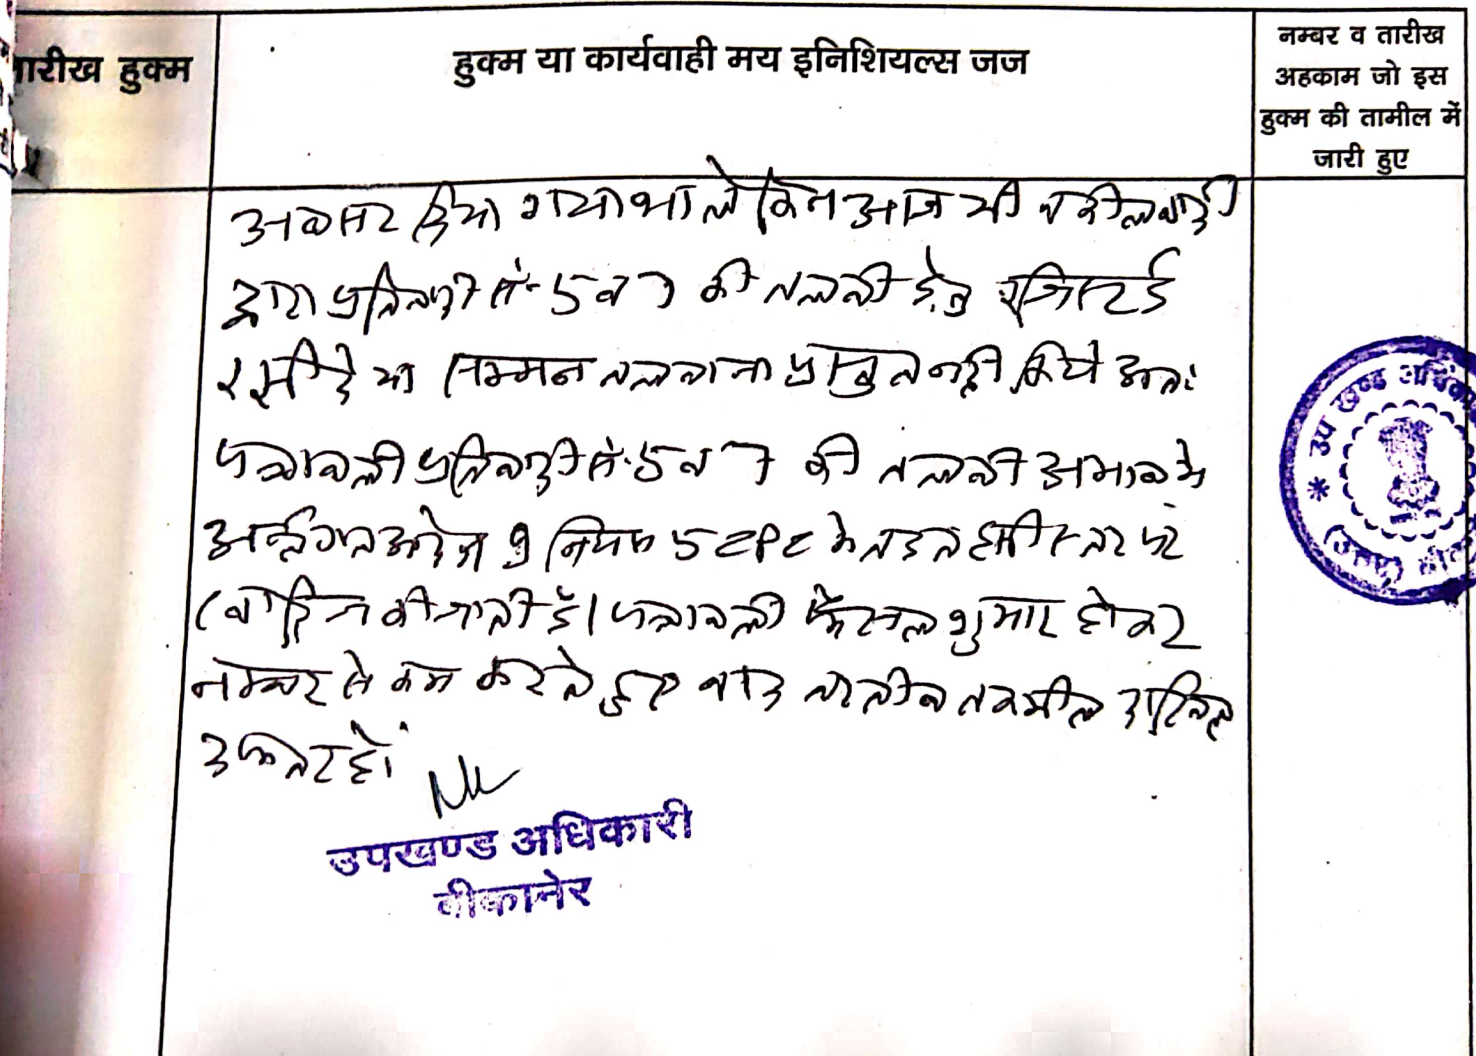 तारीख हुक्म
हुक्म या कार्यवाही मय इनिशियल्स जज
नम्बर व तारीख
अहकाम जो इस
हुक्म की तामील में
जारी हुए
अवसर दिया गया था लेकिन आज भी वकील वादी
द्वारा प्रतिवादी सं. 5 व 7 की तलबी हेतु रजिस्टर्ड
रसीदे या सम्मन तलवाना प्रस्तुत नही किये अतः
पत्रावली प्रतिवादी सं. 5 व 7 की तलबी अभाव मे
अर्न्तगत आदेश 9 नियम 5 CPC के तहत इसी स्तर पर
खारिज की जाती है। पत्रावली फैसल शुमार होकर
नम्बर से कम करते हुए बाद तरतीब तकमील दाखिल
दफ्तर हो।
उपखण्ड अधिकारी
बीकानेर
* उप खण्ड